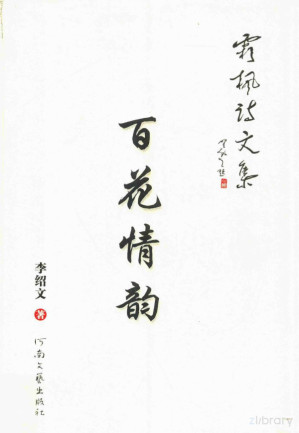 霜枫诗文集
百花情韵
李绍文 著
河南文艺出版社